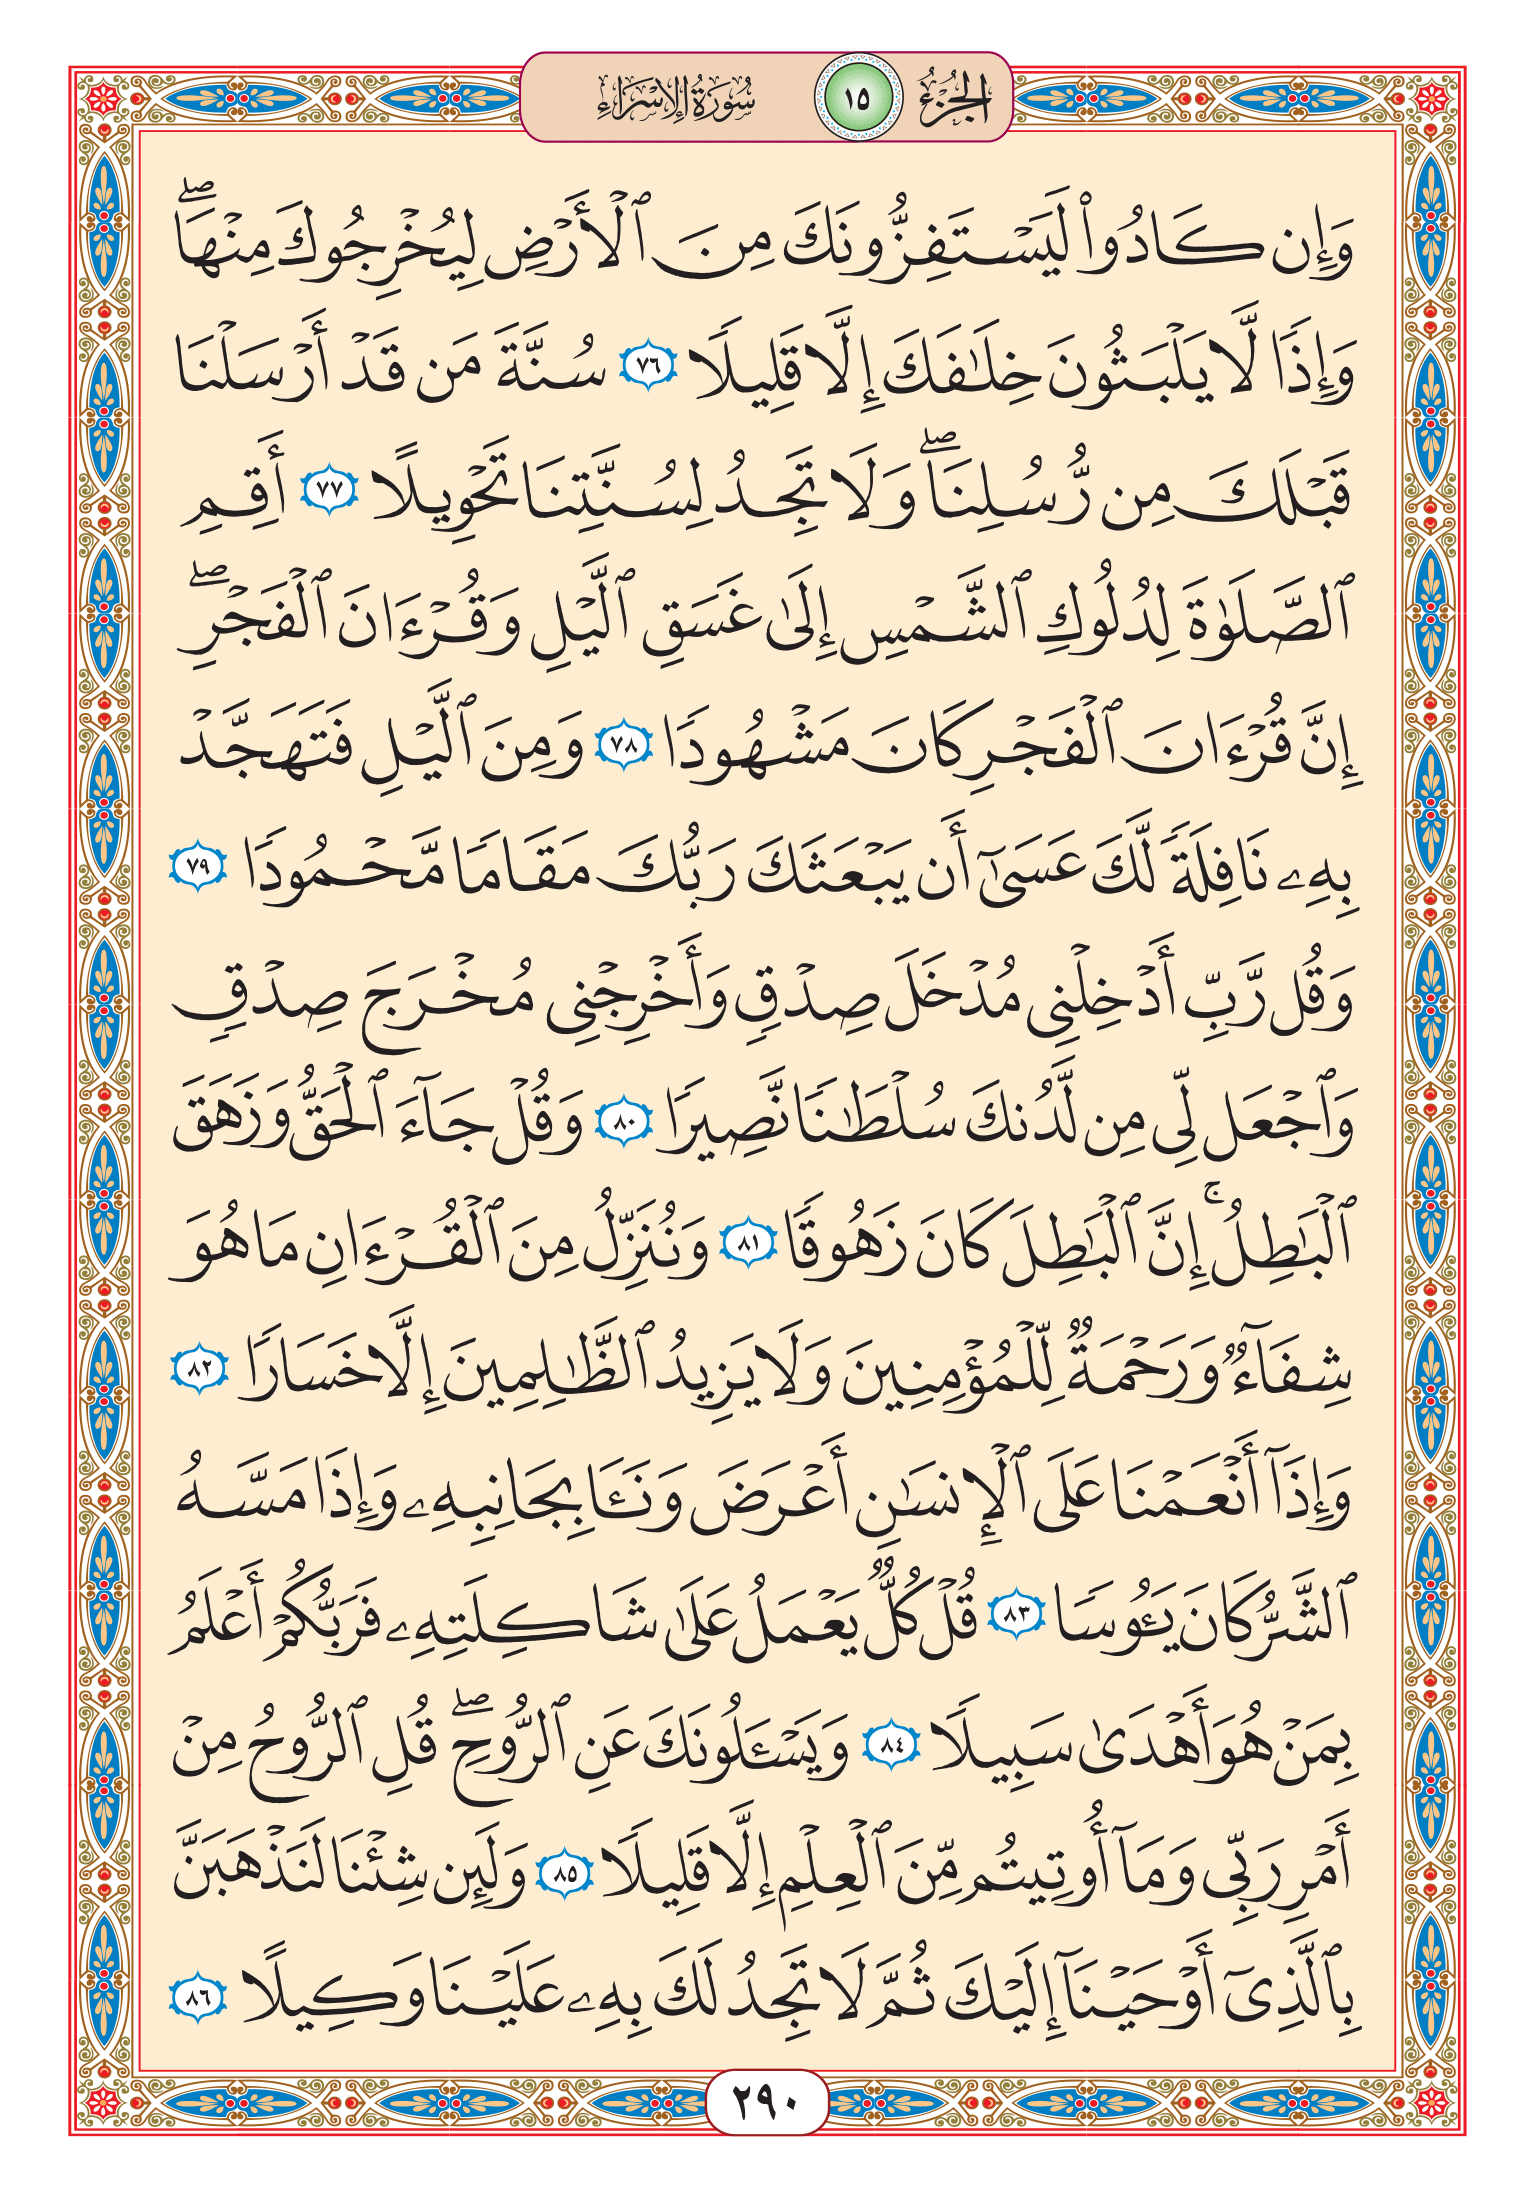 الجزء ١٥ سورة الإسراء
وَإِن كَادُوا۟ لَيَسْتَفِزُّونَكَ مِنَ ٱلْأَرْضِ لِيُخْرِجُوكَ مِنْهَا ۖ
وَإِذًا لَّا يَلْبَثُونَ خِلَـٰفَكَ إِلَّا قَلِيلًا ٧٦ سُنَّةَ مَن قَدْ أَرْسَلْنَا
قَبْلَكَ مِن رُّسُلِنَا ۖ وَلَا تَجِدُ لِسُنَّتِنَا تَحْوِيلًا ٧٧ أَقِمِ
ٱلصَّلَوٰةَ لِدُلُوكِ ٱلشَّمْسِ إِلَىٰ غَسَقِ ٱلَّيْلِ وَقُرْءَانَ ٱلْفَجْرِ ۖ
إِنَّ قُرْءَانَ ٱلْفَجْرِ كَانَ مَشْهُودًا ٧٨ وَمِنَ ٱلَّيْلِ فَتَهَجَّدْ
بِهِۦ نَافِلَةً لَّكَ عَسَىٰٓ أَن يَبْعَثَكَ رَبُّكَ مَقَامًا مَّحْمُودًا ٧٩
وَقُل رَّبِّ أَدْخِلْنِى مُدْخَلَ صِدْقٍ وَأَخْرِجْنِى مُخْرَجَ صِدْقٍ
وَٱجْعَل لِّى مِن لَّدُنكَ سُلْطَـٰنًا نَّصِيرًا ٨٠ وَقُلْ جَآءَ ٱلْحَقُّ وَزَهَقَ
ٱلْبَـٰطِلُ ۚ إِنَّ ٱلْبَـٰطِلَ كَانَ زَهُوقًا ٨١ وَنُنَزِّلُ مِنَ ٱلْقُرْءَانِ مَا هُوَ
شِفَآءٌ وَرَحْمَةٌ لِّلْمُؤْمِنِينَ وَلَا يَزِيدُ ٱلظَّـٰلِمِينَ إِلَّا خَسَارًا ٨٢
وَإِذَآ أَنْعَمْنَا عَلَى ٱلْإِنسَـٰنِ أَعْرَضَ وَنَـَٔا بِجَانِبِهِۦ وَإِذَا مَسَّهُ
ٱلشَّرُّ كَانَ يَـُٔوسًا ٨٣ قُلْ كُلٌّ يَعْمَلُ عَلَىٰ شَاكِلَتِهِۦ فَرَبُّكُمْ أَعْلَمُ
بِمَنْ هُوَ أَهْدَىٰ سَبِيلًا ٨٤ وَيَسْـَٔلُونَكَ عَنِ ٱلرُّوحِ ۖ قُلِ ٱلرُّوحُ مِنْ
أَمْرِ رَبِّى وَمَآ أُوتِيتُم مِّنَ ٱلْعِلْمِ إِلَّا قَلِيلًا ٨٥ وَلَئِن شِئْنَا لَنَذْهَبَنَّ
بِٱلَّذِىٓ أَوْحَيْنَآ إِلَيْكَ ثُمَّ لَا تَجِدُ لَكَ بِهِۦ عَلَيْنَا وَكِيلًا ٨٦
٢٩٠